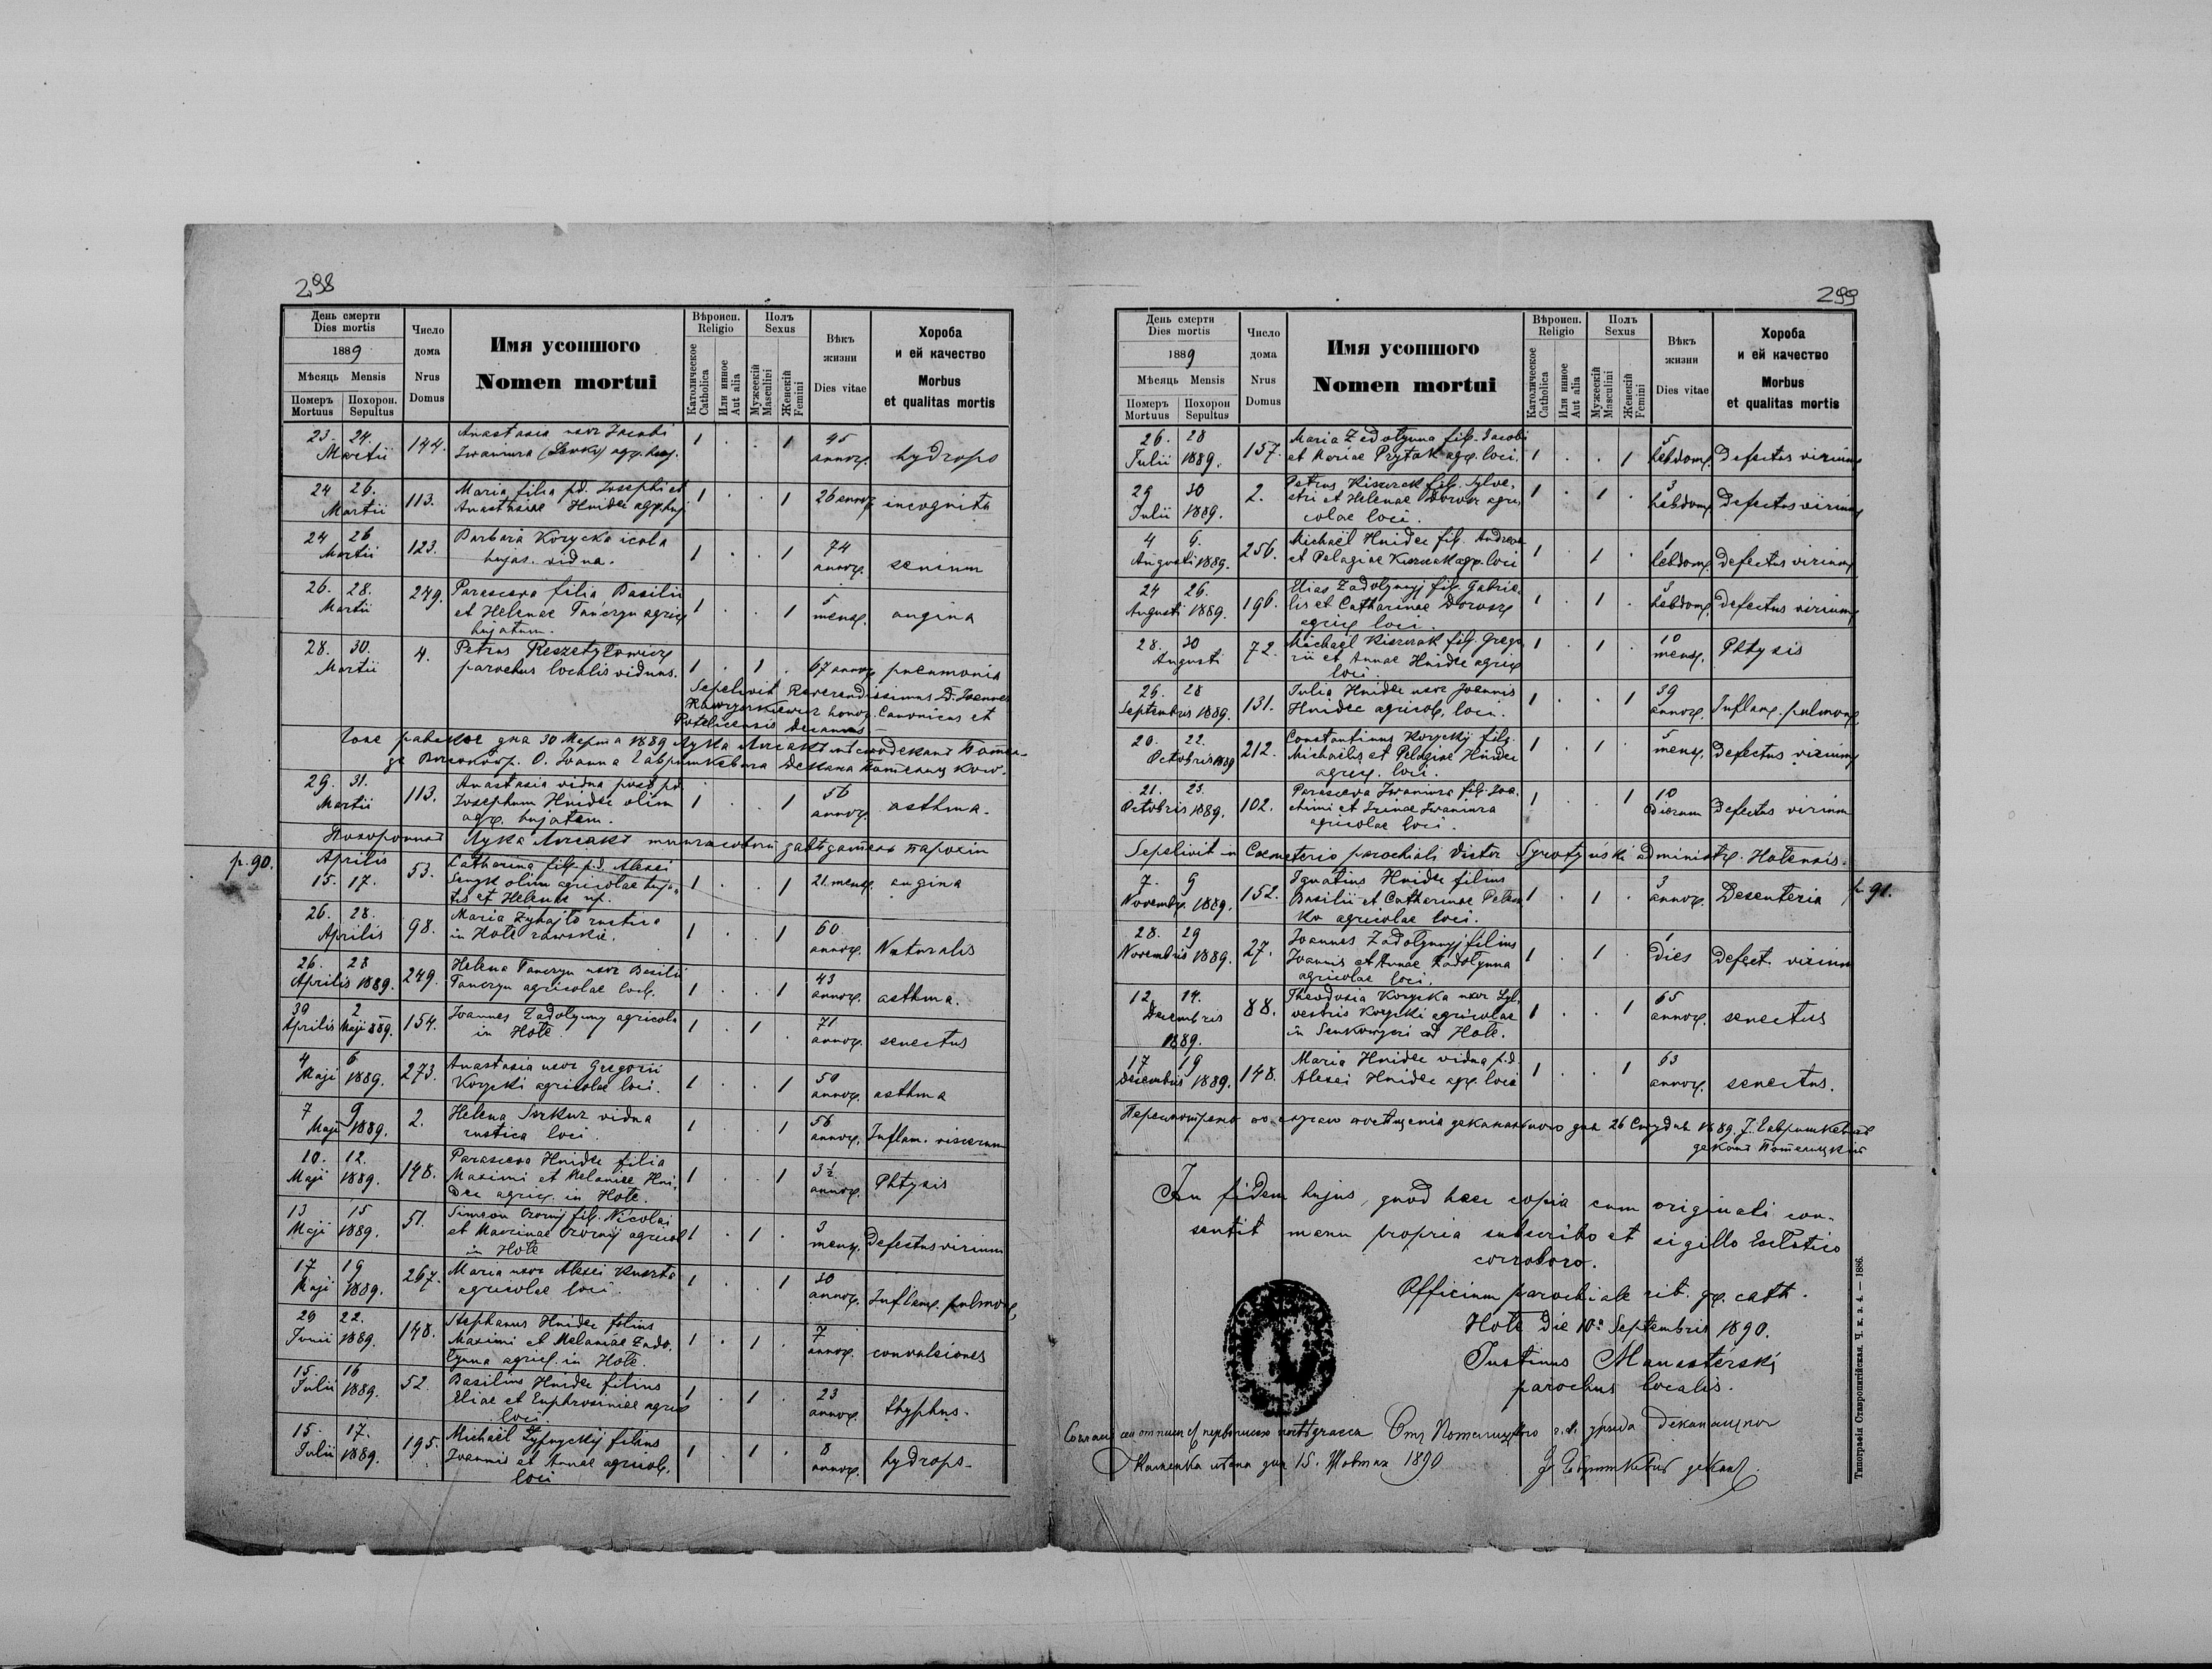 298
День смерти
Dies mortis
1889
Мѣсяць Mensis
Померъ Похорон.
Mortuus Sepultus
Число
дома
Nrus
Domus
Имя усопшого
Nomen mortui
Вѣроисп.
Religio
Католическое
Catholica
Или инное
Aut alia
Полъ
Sexus
Мужескій
Masculini
Женскій
Femini
Вѣкъ
жизни
Dies vitae
Хороба
и ей качество
Morbus
et qualitas mortis
23. 24. Martii 144. Anastasia uxor Jacobi 1 . . 1 45 annor. hydrops
Iwaniura agr. huj.
24 26. Martii 113. Maria filia pd. Josephi et 1 . . 1 26 annor. incognita
Anastasiae Hnidec agr. huj
24 26 Martii 123. Barbara Korycka icola 1 . . 1 74 annor. senium
hujas. vidua.
26. 28. Martii 249. Parasceva filia Basilii 1 . . 1 5 mens. angina
et Helenae Tanczyn agric
hujatum.
28. 30. Martii 4. Petrus Reszetyłowicz 1 . 1 . 67 annor. pneumonia
parochus localis viduus.
Sepelivit Reverendissimus D. Joannes
honor. Canonicus et
Potelicensis Decanus
дня 30 Марта 1889 Лука Лисакъ
29. 31. Martii 113. Anastasia vidua post pd. 1 . . 1 56 annor. asthma.
Josephum Hnidec olim
agr. hujatem.
Похоронилъ Лука Лисакъ завѣдатель парохіи
p. 90.
Aprilis 15. 17. 53. Catharina fil. pd. Alexei 1 . . 1 21. mens. angina
Senyk olim agricolae huja-
tis et Helenae
26. 28. Aprilis 98. Maria Zyhajło rustica 1 . . 1 60 annor. Naturalis
in Hołe rawskie.
26. 28 Aprilis 1889. 249. Helena Tanczyn uxor Basilii 1 . . 1 43 annor. asthma.
Tanczyn agricolae loci.
30 2 Aprilis Maji 889. 154. Joannes Zadolynny agricola 1 . 1 . 71 annor. senectus
in Hołe
4 6 Maji 1889. 273. Anastasia uxor Gregorii 1 . . 1 50 annor. asthma
Korycki agricolae loci.
7 9 Maji 1889. 2. Helena vidua 1 . . 1 56 annor. Inflam. viscerum
rustica loci.
10. 12. Maji 1889. 148. Parasceva Hnidec filia 1 . . 1 3½ annor. Phtysis
Maximi et Melaniae Hni-
dec agric. in Hołe.
13 15 Maji 1889. 51. Simeon Czornij fil. Nicolai 1 . 1 . 3 mens. Defectus virium
et Macrinae Czornij agricol
in Hołe
17 19 Maji 1889. 267. Maria uxor Alexei 1 . . 1 30 annor. Inflam. pulmon.
agricolae loci.
20 22. Junii 1889. 148. Stephanus Hnidec filius 1 . 1 . 7 annor. convulsiones
Maximi et Melaniae Zado-
lynna agric. in Hołe.
15. 16 Julii 1889. 52. Basilius Hnidec filius 1 . 1 . 23 annor. thyphus.
Eliae et Euphrosiniae agric
loci.
15. 17. Julii 1889. 195. Michaël filius 1 . 1 . 8 annor. hydrops.
Joannis et Annae agricol.
loci
299
День смерти
Dies mortis
1889
Мѣсяць Mensis
Померъ Похорон
Mortuus Sepultus
Число
дома
Nrus
Domus
Имя усопшого
Nomen mortui
Вѣроисп.
Religio
Католическое
Catholica
Или инное
Aut alia
Полъ
Sexus
Мужескій
Masculini
Женскій
Femini
Вѣкъ
жизни
Dies vitae
Хороба
и ей качество
Morbus
et qualitas mortis
26. 28 Julii 1889. 157. Maria Zadolynna fil. Jacobi 1 . . 1 5 hebdom. Defectus virium
et Mariae Prytak agr. loci.
29 30 Julii 1889. 2. Petrus Kiszczak fil. Sylve- 1 . 1 . 3 hebdom. Defectus virium
stri et Helenae Dorosz agri-
colae loci.
4 6. Augusti 1889. 256. Michaël Hnidec fil. Andreae 1 . 1 1 hebdom. Defectus virium
et Pelagiae agr. loci
24 26. Augusti 1889. 196. Elias Zadolynnyj fil. Gabrie- 1 . 1 . 3 hebdom. Defectus virium
lis et Catharinae Dorosz
agric. loci.
28. 30 Augusti 72. Michaël Kiszczak fil. Grego- 1 . 1 . 10 mens. Phtysis
rii et Annae Hnidec agric
loci.
26. 28 Septembris 1889. 131. Julia Hnidec uxor Joannis 1 . . 1 39 annor. Inflam. pulmon.
Hnidec agricol. loci.
20. 22. Octobris 1889 212. Constantinus Koryckij fil. 1 . 1 . 5 mens. Defectus virium
Michaëlis et Pelagiae Hnidec
agric. loci.
21. 23. Octobris 1889. 102. Parasceva Iwaniura fil. Joa- 1 . . 1 10 dierum Defectus virium
chimi et Irinae Iwaniura
agricolae loci.
Sepelivit in Coemeterio parochiali Victor administr. Hołensis.
7. 9 Novembr. 1889. 152. Ignatius Hnidec filius 1 . 1 . 3 annor. Desenteria
Basilii et Catharinae
agricolae loci.
p. 91.
28. 29 Novembris 1889. 27. Joannes Zadolynnyj filius 1 . 1 . 1 dies defect. virium
Joannis et Annae Zadolynna
agricolae loci.
12. 14. Decembris 1889. 88. Theodosia Korycka uxor Syl- 1 . . 1 65 annor. senectus
vestris Korycki agricolae
in ad Hołe.
17 19 Decembris 1889. 148. Maria Hnidec vidua pd. 1 . . 1 63 annor. senectus.
Alexei Hnidec agr. loci
Пересмотрено деканального дня 26 Студня 1889.
In fidem hujus, quod haec copia cum originali con-
sentit manu propria subscribo et sigillo Ecclstico
corroboro.
Officium parochiale rit. gr. cath.
Hołe die 10. Septembris 1890.
Justinus Manastérski
parochus localis.
дня 15. Жовтня 1890
Типографія Ставропигійская. Ч. к. з. 4. — 1886.